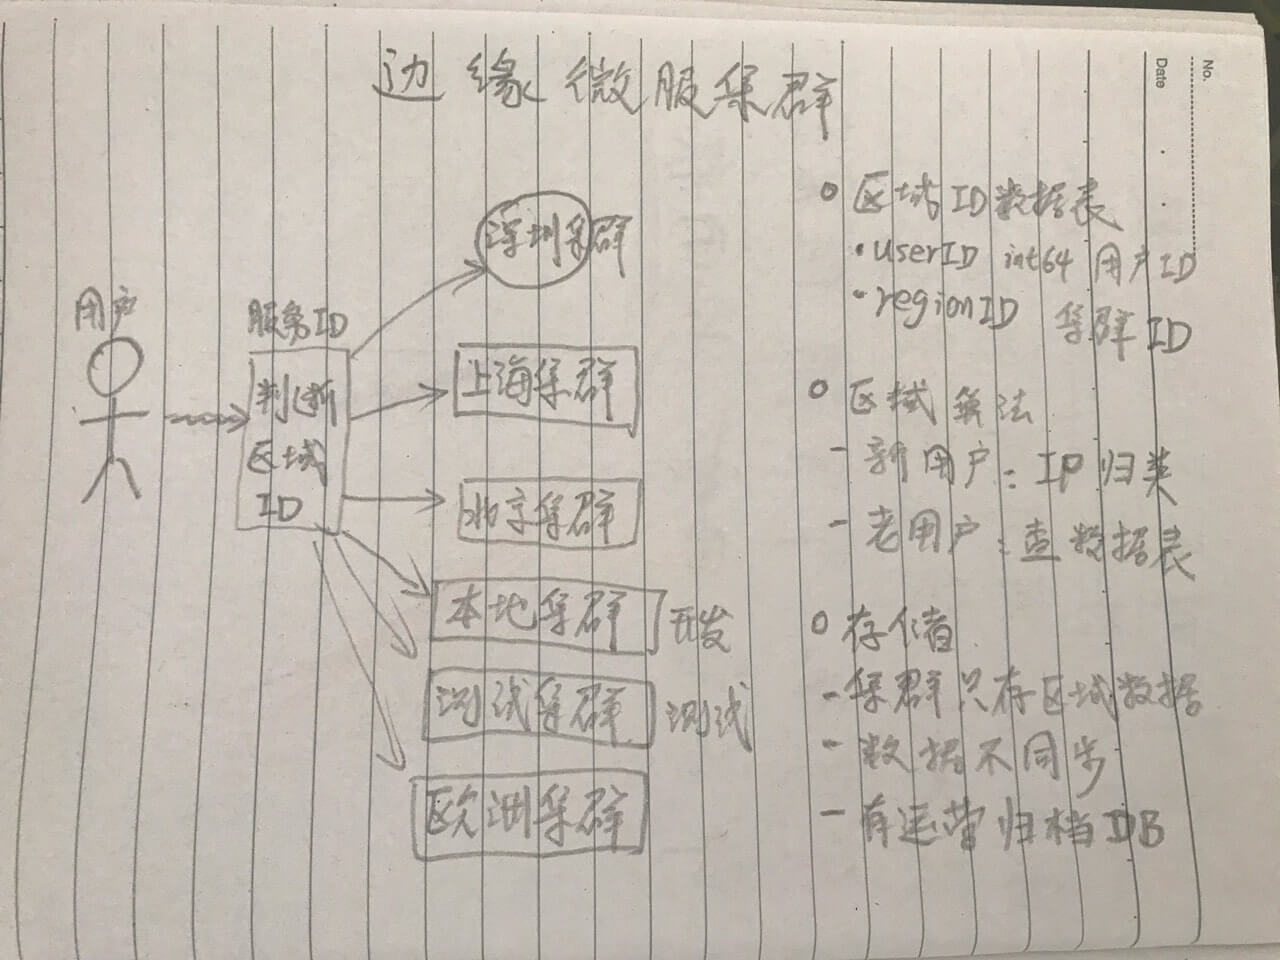 No.
Date
边缘微服集群
用户
服务ID
判断
区域
ID
深圳集群
上海集群
北京集群
本地集群 开发
测试集群 测试
欧洲集群
区域ID数据表
userID int64 用户ID
regionID 集群ID
区域算法
- 新用户:IP归类
- 老用户:查数据表
存储
- 集群只存区域数据
- 数据不同步
- 有运营归档DB